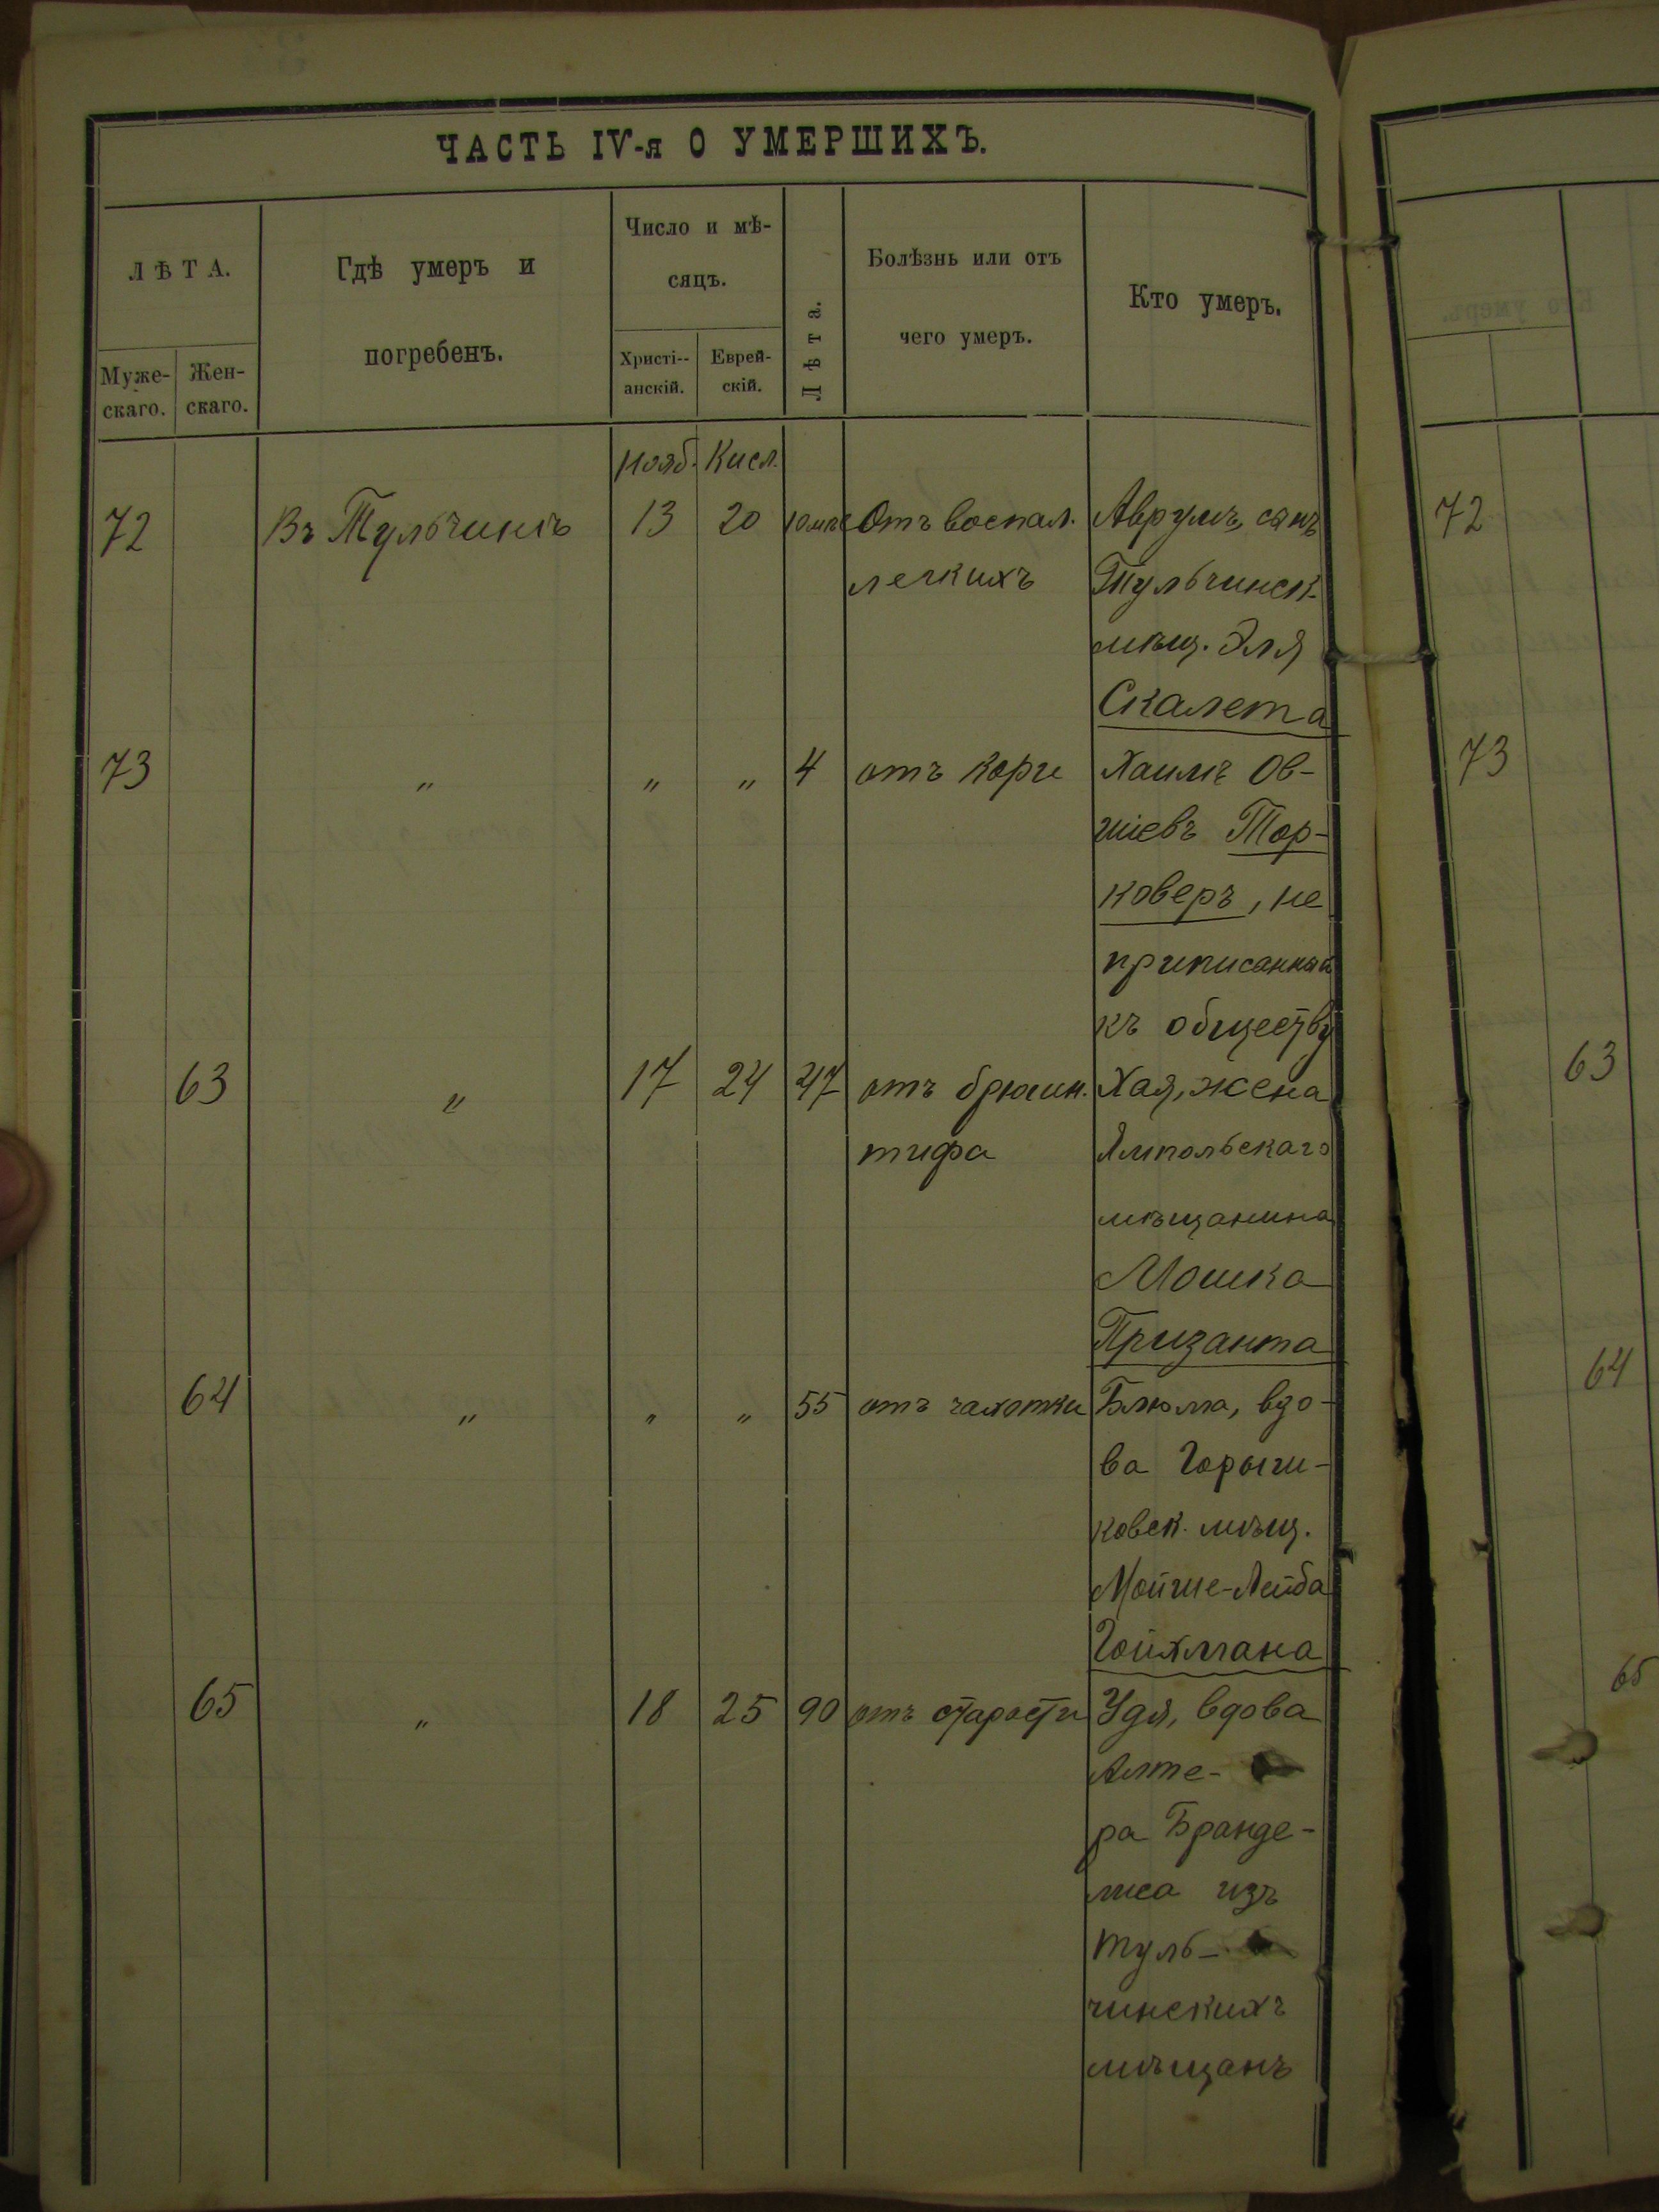 ЧАСТЬ IV-я О УМЕРШИХЪ.
ЛѢТА.
Муже-
скаго.
Жен-
скаго.
Гдѣ умеръ и
погребенъ.
Число и мѣ-
сяцъ.
Христі--
анскій.
Еврей-
скій.
Лѣта.
Болѣзнь или отъ
чего умеръ.
Кто умеръ.
Нояб. Кисл.
72 Въ Тульчинѣ 13 20 10 мѣс Отъ воспал. Аврумъ, сынъ 72
легкихъ Тульчинск.
мѣщ. Эля
Скалета
73 " " " 4 отъ корги Хаимъ Ов- 73
шіевъ Тор-
коверъ, не
приписанный
къ обществу
63 " 17 24 47 отъ брюшн. Хая, жена 63
тифа Ямпольскаго
мѣщанина
Мошка
Призанта
64 " " " 55 отъ чахотки Блюма, вдо- 64
ва Горыш-
ковск. мѣщ.
Мойше-Лейба
Гойхмана
65 " 18 25 90 отъ старости Удя, вдова 65
Алте-
ра Бранде-
лиса изъ
Туль-
чинскихъ
мѣщанъ